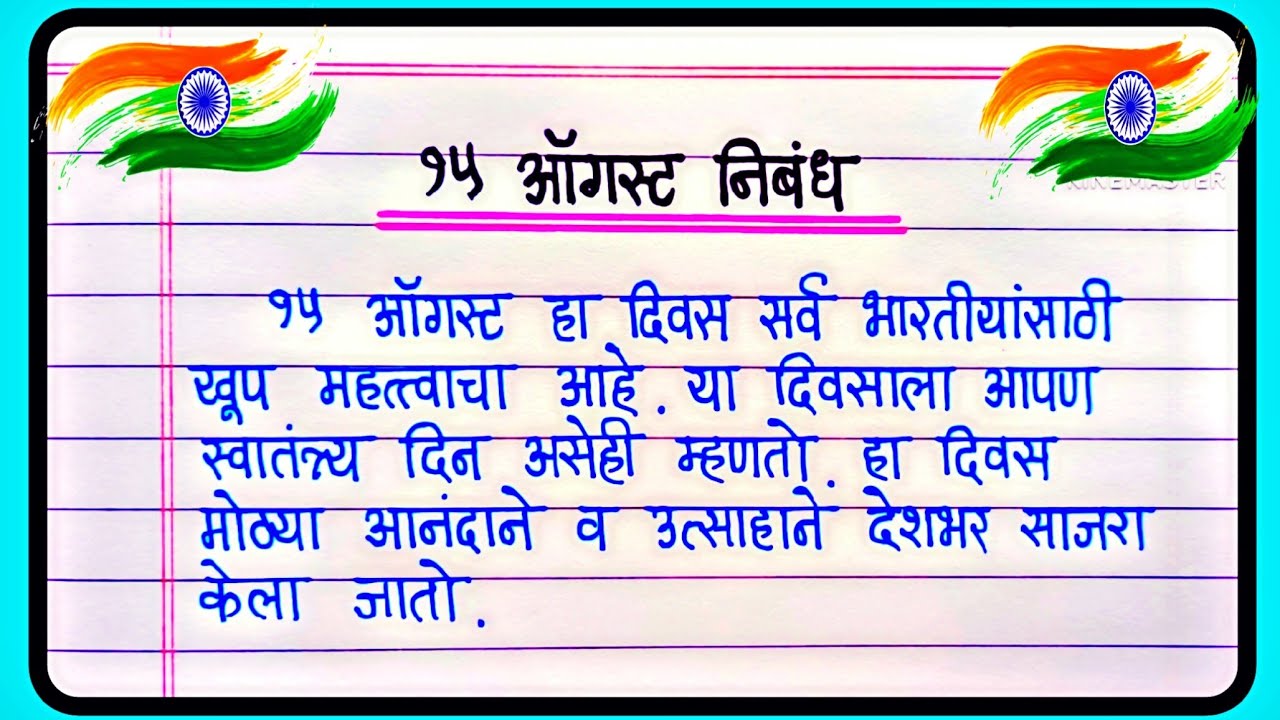 १५ ऑगस्ट निबंध
KINEMASTER
१५ ऑगस्ट हा दिवस सर्व भारतीयांसाठी
खूप महत्त्वाचा आहे. या दिवसाला आपण
स्वातंत्र्य दिन असेही म्हणतो. हा दिवस
मोठ्या आनंदाने व उत्साहाने देशभर साजरा
केला जातो.